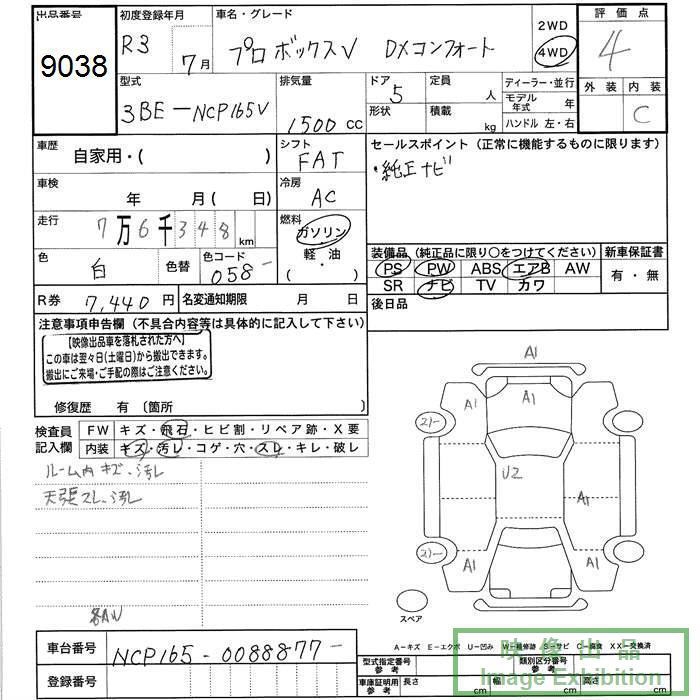 出品番号
9038
初度登録年月
R3 7月
車名・グレード
プロボックスV DXコンフォート
2WD
4WD
評価点
4
型式
3BE-NCP165V
排気量
1500 CC
ドア
5
形状
定員 人
積載 kg
ディーラー・並行
モデル年式 年
ハンドル 左・右
外装 内装
C
車歴
自家用・( )
シフト
FAT
セールスポイント (正常に機能するものに限ります)
・純正ナビ
車検
年 月( 日)
冷房
AC
走行
7万6千348km
燃料
ガソリン
軽・油
( )
色
白
色替
色コード
058-
装備品 (純正品に限り〇をつけてください)
PS PW ABS エアB AW
SR ナビ TV カワ
新車保証書
有・無
R券 7,440円
名変通知期限 月 日
後日品
注意事項申告欄 (不具合内容等は具体的に記入して下さい)
【映像出品車を落札された方へ】
この車は翌々日(土曜日)から搬出できます。
搬出にご来場・ご手配の際はご注意ください。
修復歴 有 〔箇所 〕
検査員記入欄
FW キズ・飛石・ヒビ割・リペア跡・X要
内装 キズ・汚レ・コゲ・穴・スレ・キレ・破レ
ルーム内キズ・汚レ
天張スレ・汚レ
A1
A1
A1
U2
A1
A1
A1
スペア
車台番号
NCP165-0088877-
登録番号
A-キズ E-エクボ U-凹み W-補修跡 S-サビ C-腐食 XX-交換済
型式指定番号
参考
類別区分番号
参考
車庫証明用
参考
長さ cm
幅 cm
高さ cm
映像出品
Image Exhibition